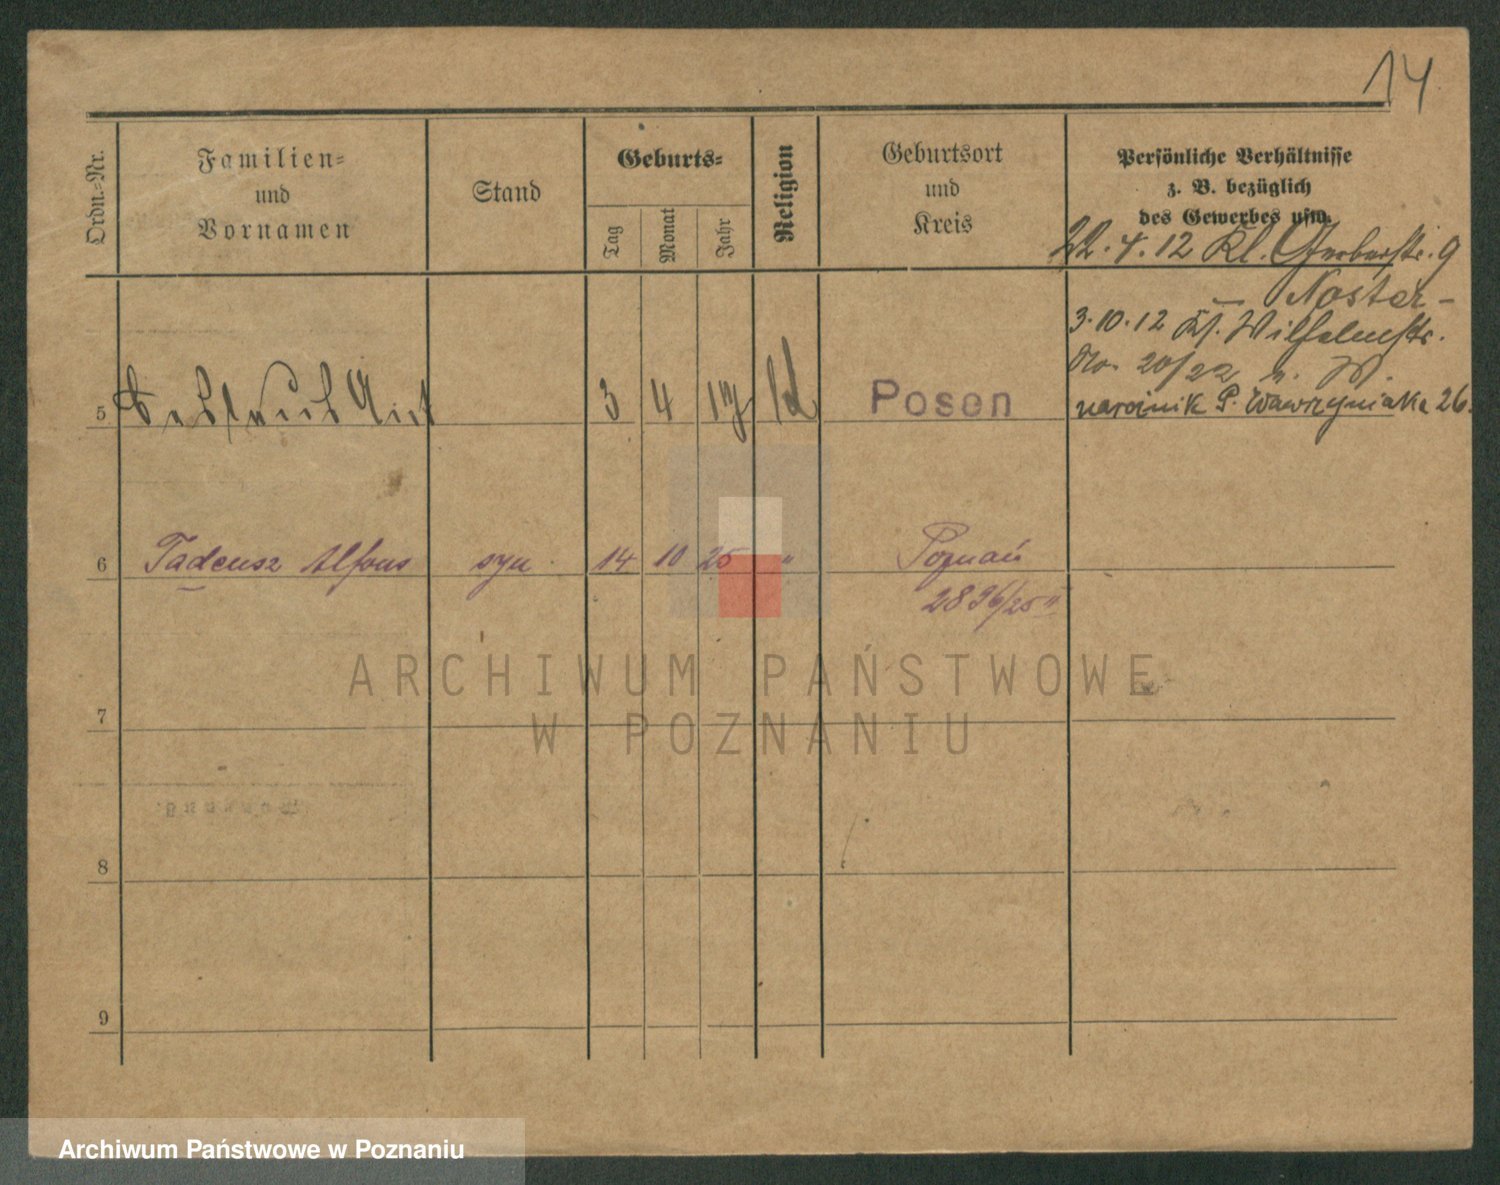 14
Ordn.=Nr.
Familien=
und
Vornamen
Stand
Geburts=
Tag
Monat
Jahr
Religion
Geburtsort
und
Kreis
Persönliche Verhältnisse
z. B. bezüglich
des Gewerbes usw.
22.4.12 Kl. Gerberstr. 9
3.10.12 Wilhelmstr.
No. 20/22
narożnik P. Wawrzyniaka 26.
5
3 4 Posen
6 Tadeusz Alfons syn 14 10 25 " Poznań
2896/25 II
7
8
9
ARCHIWUM PAŃSTWOWE
W POZNANIU
Archiwum Państwowe w Poznaniu